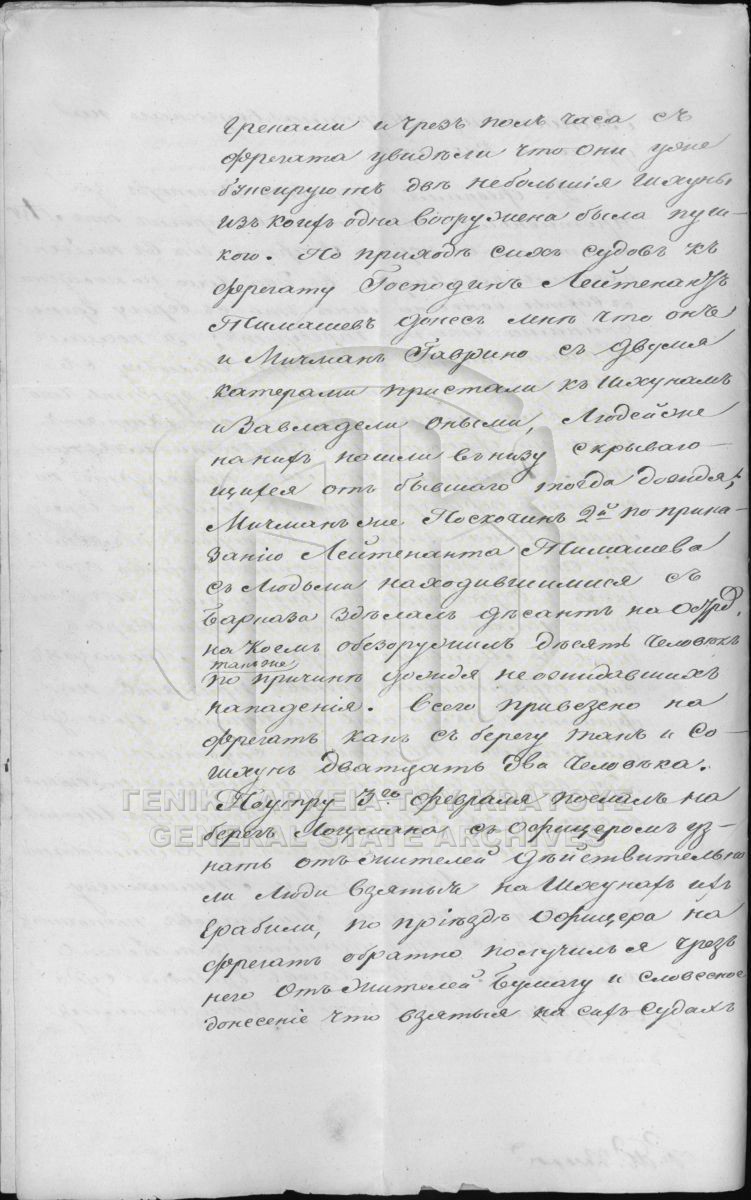 греками и чрезъ полъ часа съ
фрегата увидѣли что они уже
буксируютъ двѣ небольшія шхуны
изъ коихъ одна вооружена была пуш-
кою. По приходѣ сихъ судовъ къ
фрегату Господинъ Лейтенантъ
Тимашевъ донесъ мнѣ что онъ
и Мичманъ Гаврино съ двумя
катерами пристали къ шхунамъ
и завладели оными, Людей же
на нихъ нашли въ низу скрываю-
щихся отъ бывшаго тогда дождя,
Мичманъ же Посхочинъ 2й по прика-
занію Лейтенанта Тимашева
съ Людьми находившимися съ
Барказа здѣлалъ дѣсантъ на
на коемъ обезоружилъ дѣсять человѣкъ
также
по причинѣ дождя неожидавшихъ
нападенія. Всего привезено на
фрегатъ какъ съ берегу такъ и со
шхунъ дватцать два человѣка.
ΓΕΝΙΚΑ ΑΡΧΕΙΑ ΤΟΥ ΚΡΑΤΟΥΣ
Поутру 3го февраля послалъ на
GENERAL STATE ARCHIVES
берегъ Лоцмана съ офицеромъ уз-
нать отъ жителей дѣйствительно
ли люди взятыя на шхунахъ ихъ
грабили, по пріездѣ офицера на
фрегатъ обратно получилъ я чрезъ
него отъ жителей бумагу и словесное
донесеніе что взятыя на сихъ судахъ